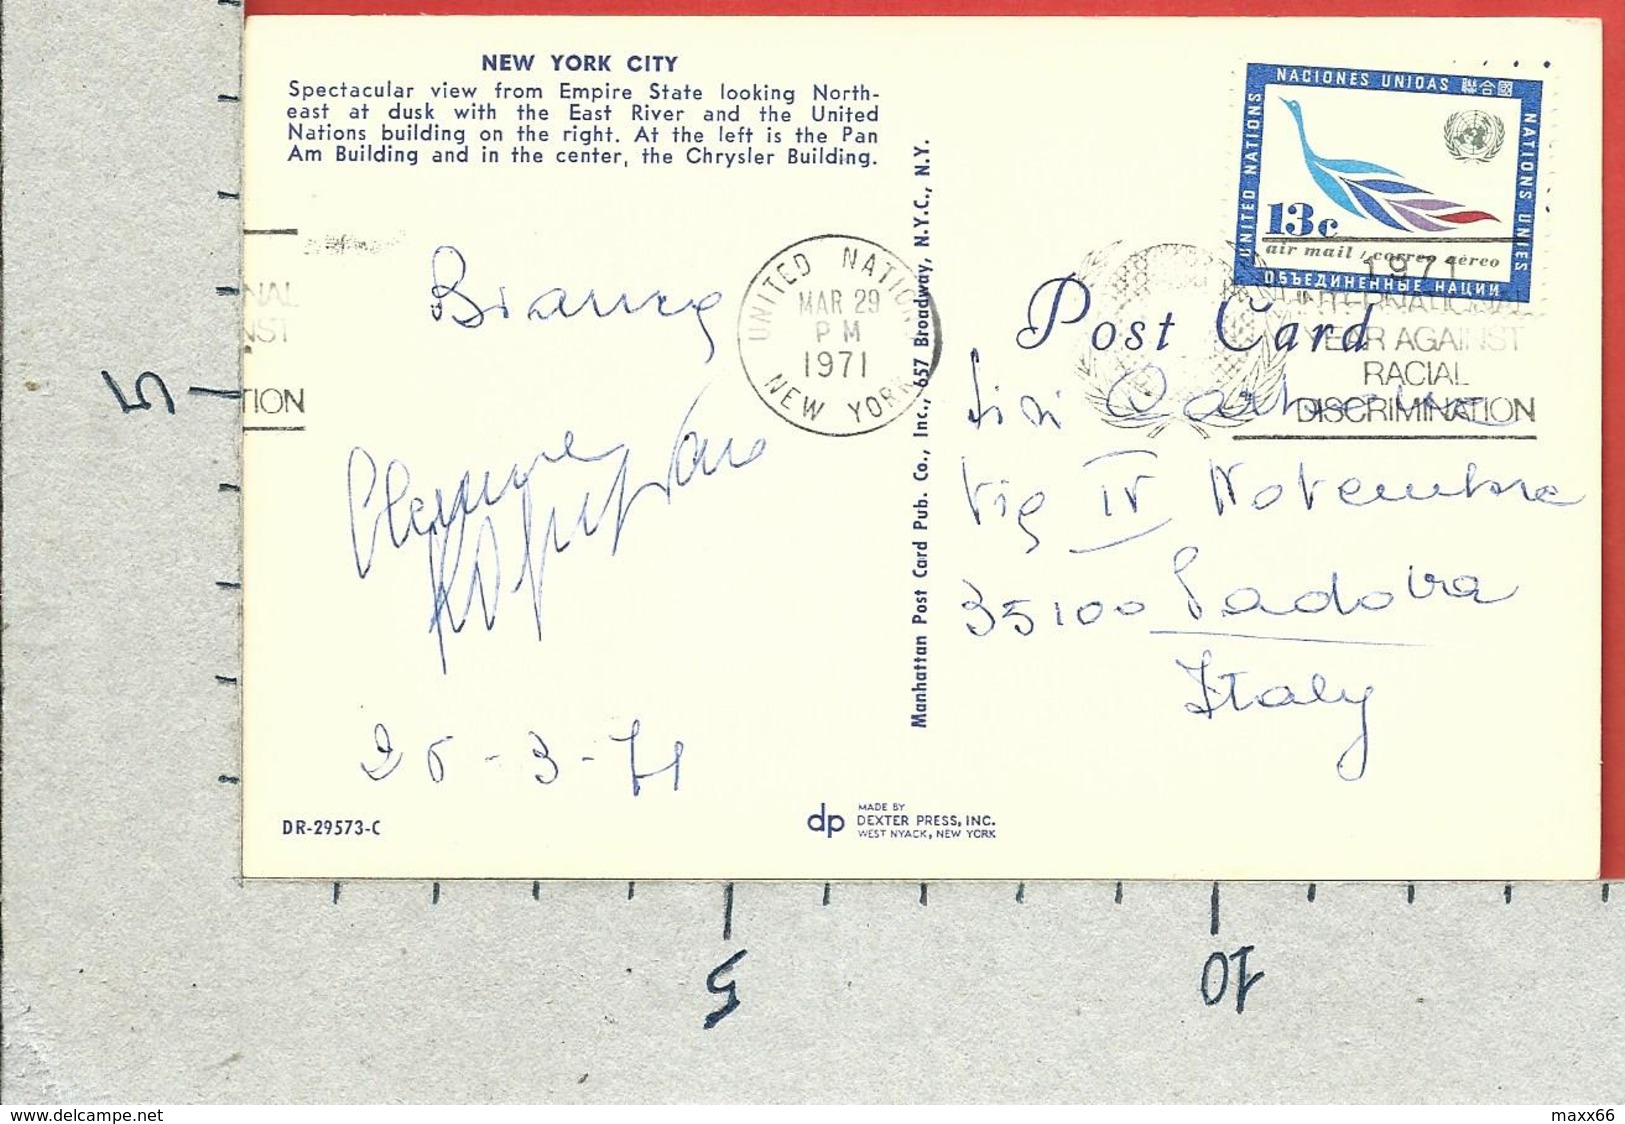 NEW YORK CITY
Spectacular view from Empire State looking North-
east at dusk with the East River and the United
Nations building on the right. At the left is the Pan
Am Building and in the center, the Chrysler Building.
NAL
NST
TION
UNITED NATIONS
MAR 29
PM
1971
NEW YORK
26-3-71
DR-29573-C
Manhattan Post Card Pub. Co., Inc., 657 Broadway, N.Y.C., N.Y.
dp
MADE BY
DEXTER PRESS, INC.
WEST NYACK, NEW YORK
NACIONES UNIDAS 聯合國
UNITED NATIONS
NATIONS UNIES
13c
air mail / correo aéreo
ОБЪЕДИНЕННЫЕ НАЦИИ
1971
INTERNATIONAL
YEAR AGAINST
RACIAL
DISCRIMINATION
Post Card
Via IV Novembre
35100 Padova
Italy
5
5
10
www.delcampe.net
maxx66